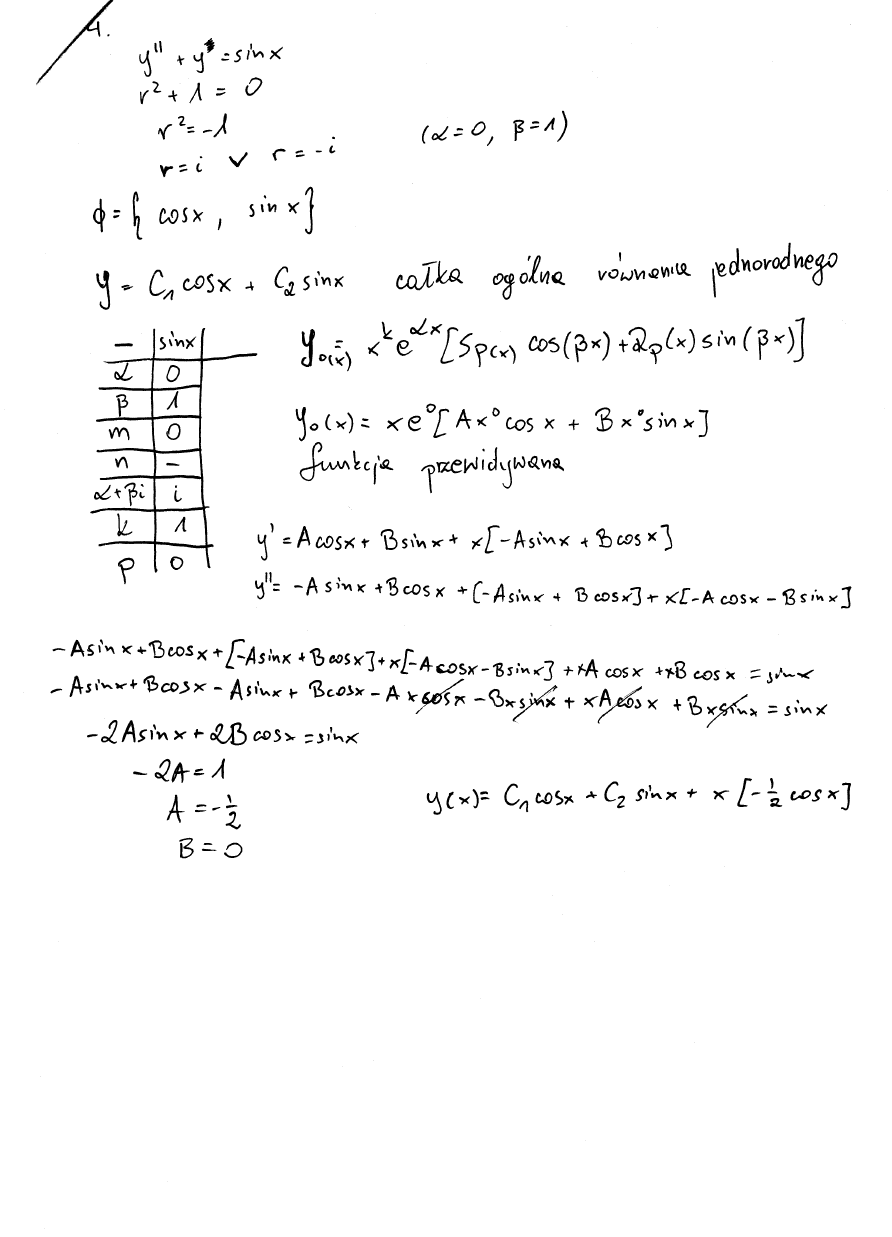 4.
y'' + y = sinx
r² + 1 = 0
r² = -1
(α=0, β=1)
r = i ∨ r = -i
ϕ = { cosx, sin x}
y = C₁ cosx + C₂ sinx całka ogólna równania jednorodnego
— | sinx
α | 0
β | 1
m | 0
n | –
α+βi | i
k | 1
p | 0
y₀(x) = xᵏ e^αx [Sp(x) cos(βx) + Rp(x) sin(βx)]
y₀(x) = x e⁰[Ax⁰ cos x + Bx⁰ sin x]
funkcja przewidywana
y' = A cosx + B sinx + x[-A sinx + B cos x]
y'' = -A sinx + B cosx + [-A sinx + B cosx] + x[-A cosx - B sinx]
-A sin x + B cosx + [-A sinx + B cosx] + x[-A cosx - B sinx] + xA cosx + xB cos x = sinx
-A sinx + B cosx - A sinx + B cosx - A x cosx - Bx sinx + xA cos x + Bx sinx = sin x
-2A sin x + 2B cosx = sinx
-2A = 1
A = -½
B = 0
y(x) = C₁ cosx + C₂ sinx + x [-½ cosx]